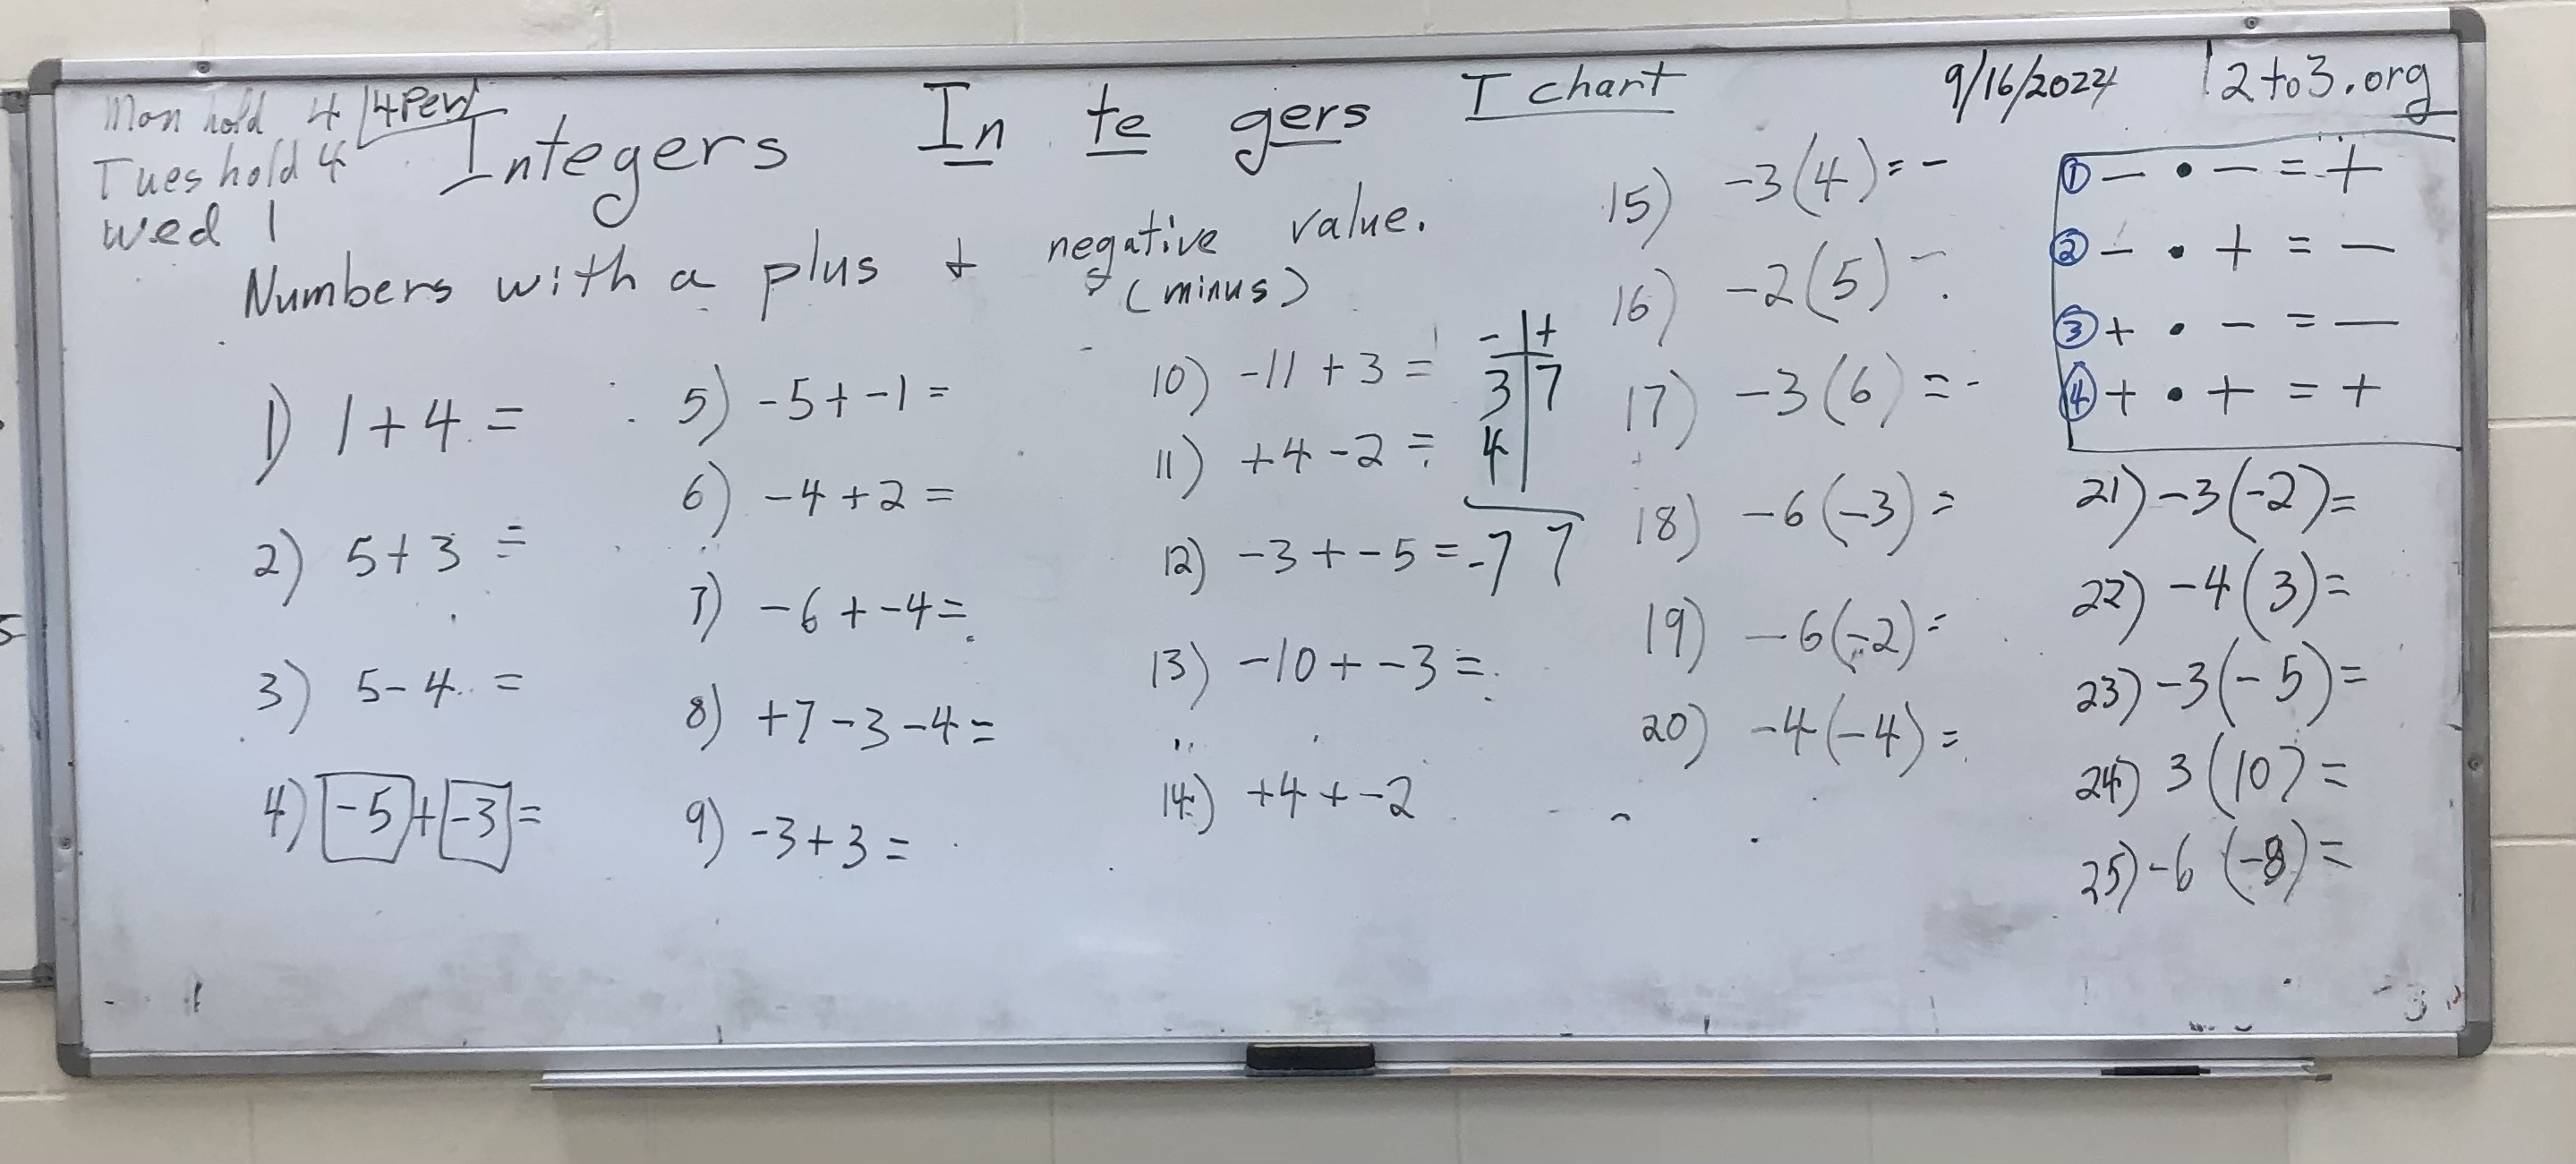 Mon hold 4 4Per
Tues hold 4
Wed 1
Integers In te gers T chart 9/16/2024 12to3.org
Numbers with a plus + negative value.
(minus)
1) 1 + 4 =
2) 5 + 3 =
3) 5 - 4 =
4) -5 + -3 =
5) -5 + -1 =
6) -4 + 2 =
7) -6 + -4 =
8) +7 - 3 - 4 =
9) -3 + 3 =
10) -11 + 3 =
11) +4 - 2 =
12) -3 + -5 =
13) -10 + -3 =
14) +4 + -2
- | +
3 | 7
4 |
-7 7
15) -3(4) = -
16) -2(5) -
17) -3(6) = -
18) -6(-3) =
19) -6(-2) =
20) -4(-4) =
① - • - = +
② - • + = -
③ + • - = -
④ + • + = +
21) -3(-2) =
22) -4(3) =
23) -3(-5) =
24) 3(10) =
25) -6(-8) =